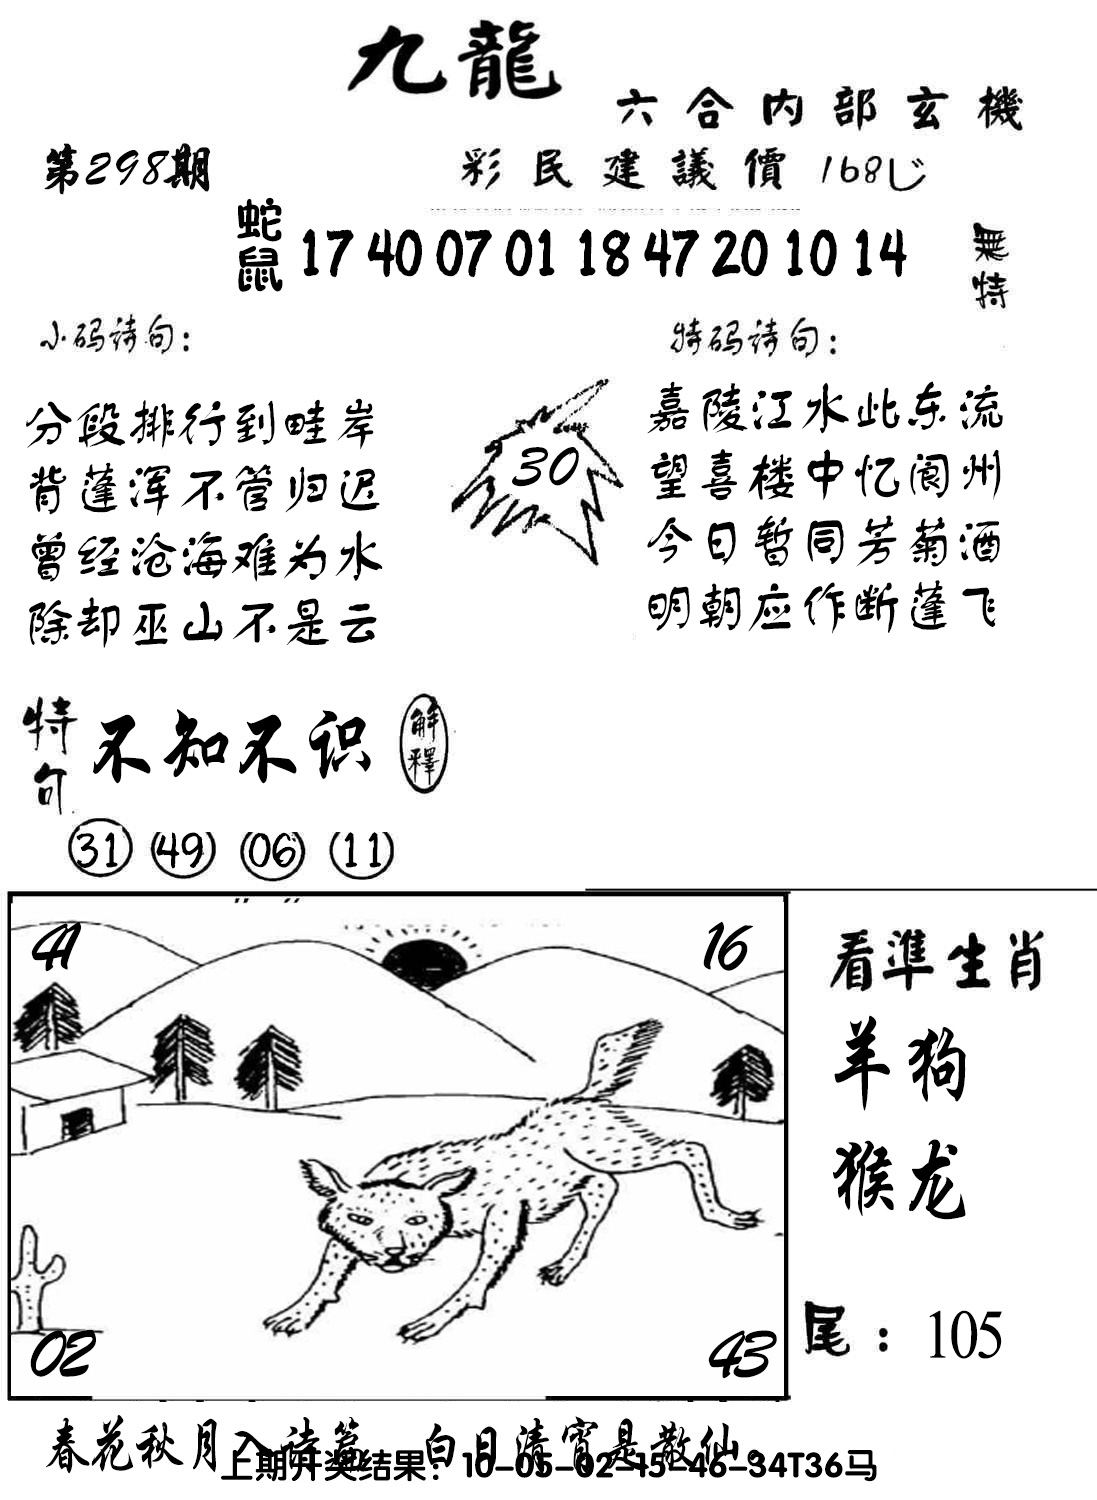 九龍
六合内部玄機
第298期
彩民建議價 168
蛇鼠 17 40 07 01 18 47 20 10 14 無特
小码诗句：
特码诗句：
分段排行到畦岸
背蓬浑不管归迟
曾经沧海难为水
除却巫山不是云
30
嘉陵江水此东流
望喜楼中忆阆州
今日暂同芳菊酒
明朝应作断蓬飞
特句 不知不识 解釋
31 49 06 11
41
16
02
43
看準生肖
羊狗
猴龙
尾：105
春花秋月入诗篇 白日清宵是散仙。
上期开奖结果：10-05-02-15-46-34T36马